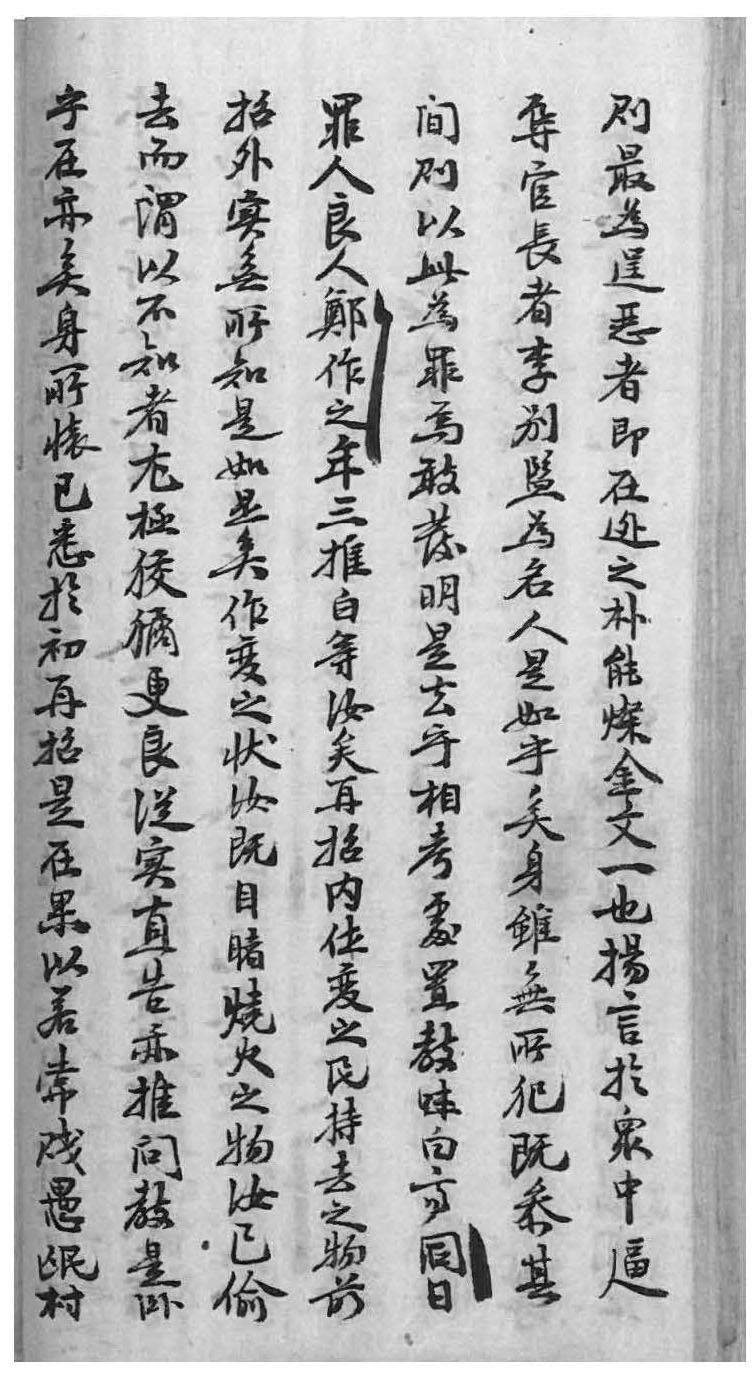 則最爲逞惡者即在逃之朴能燦金文一也揚言於衆中逼
辱官長者李別監爲名人是如乎矣身雖無所犯旣參其
間則以此爲罪焉敢發明是去乎相考處置敎味白齊同日
罪人良人鄭作之年三推白等汝矣再招內作變之民持去之物前
招外實無所知是如是矣作變之狀汝旣目睹燒火之物汝已偸
去而謂以不知者尤極狡猾更良從實直告亦推問敎是臥
乎在亦矣身所懷已悉於初再招是在果以若常賤愚氓村